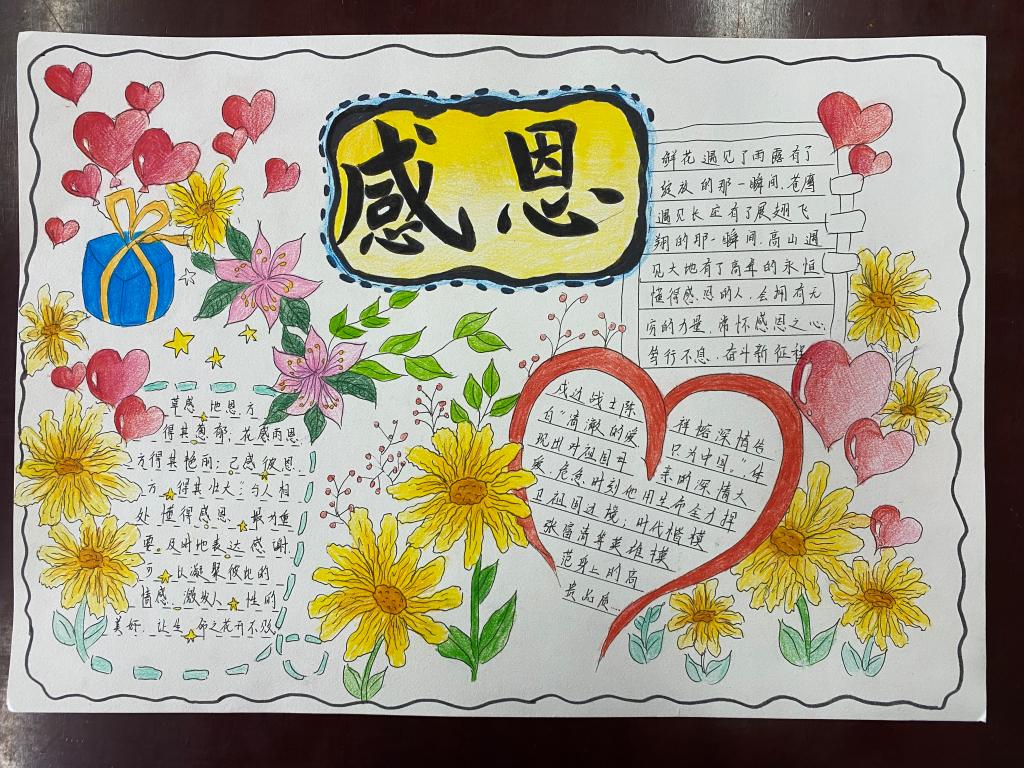 感恩
鲜花遇见了雨露有了
绽放的那一瞬间.苍鹰
遇见长空有了展翅飞
翔的那一瞬间.高山遇
见大地有了高耸的永恒
懂得感恩的人.会拥有无
穷的力量.常怀感恩之心.
笃行不息.奋斗新征程
草感 地恩.方
得其葱郁.花感雨恩.
方得其艳丽;己感彼恩.
方 得其壮大"与人相
处懂得感恩. 最为重
要.及时地表达感谢.
可 以凝聚彼此的
情感.激发人 性的
美好.让生 命之花开不败
戍边战士陈
祥榕深情告
白"清澈的爱
只为中国。"体
现出对祖国母
亲的深情大
爱.危急时刻他用生命全力捍
卫祖国边境;时代楷模
张富清等英雄模
范身上的高
贵品质...